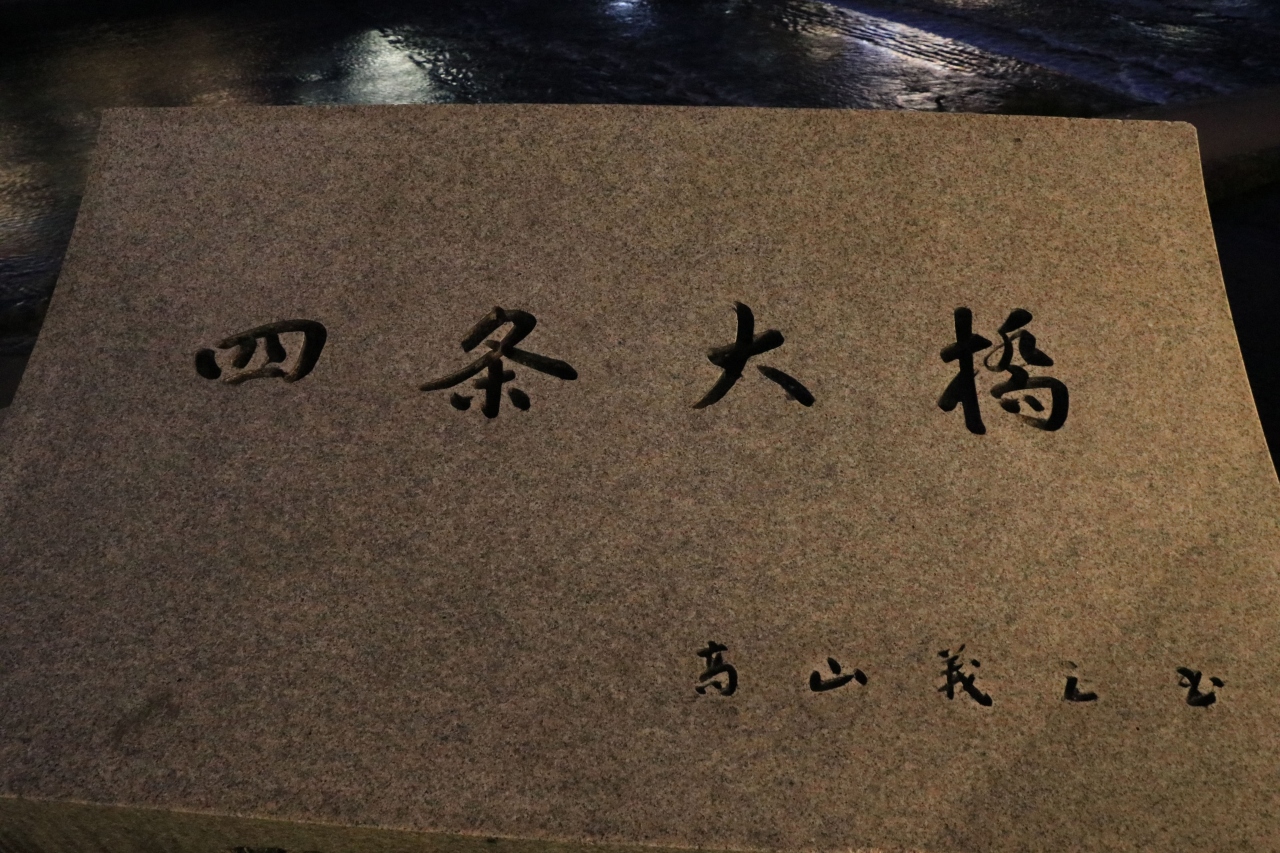 四条大橋
高山義三書